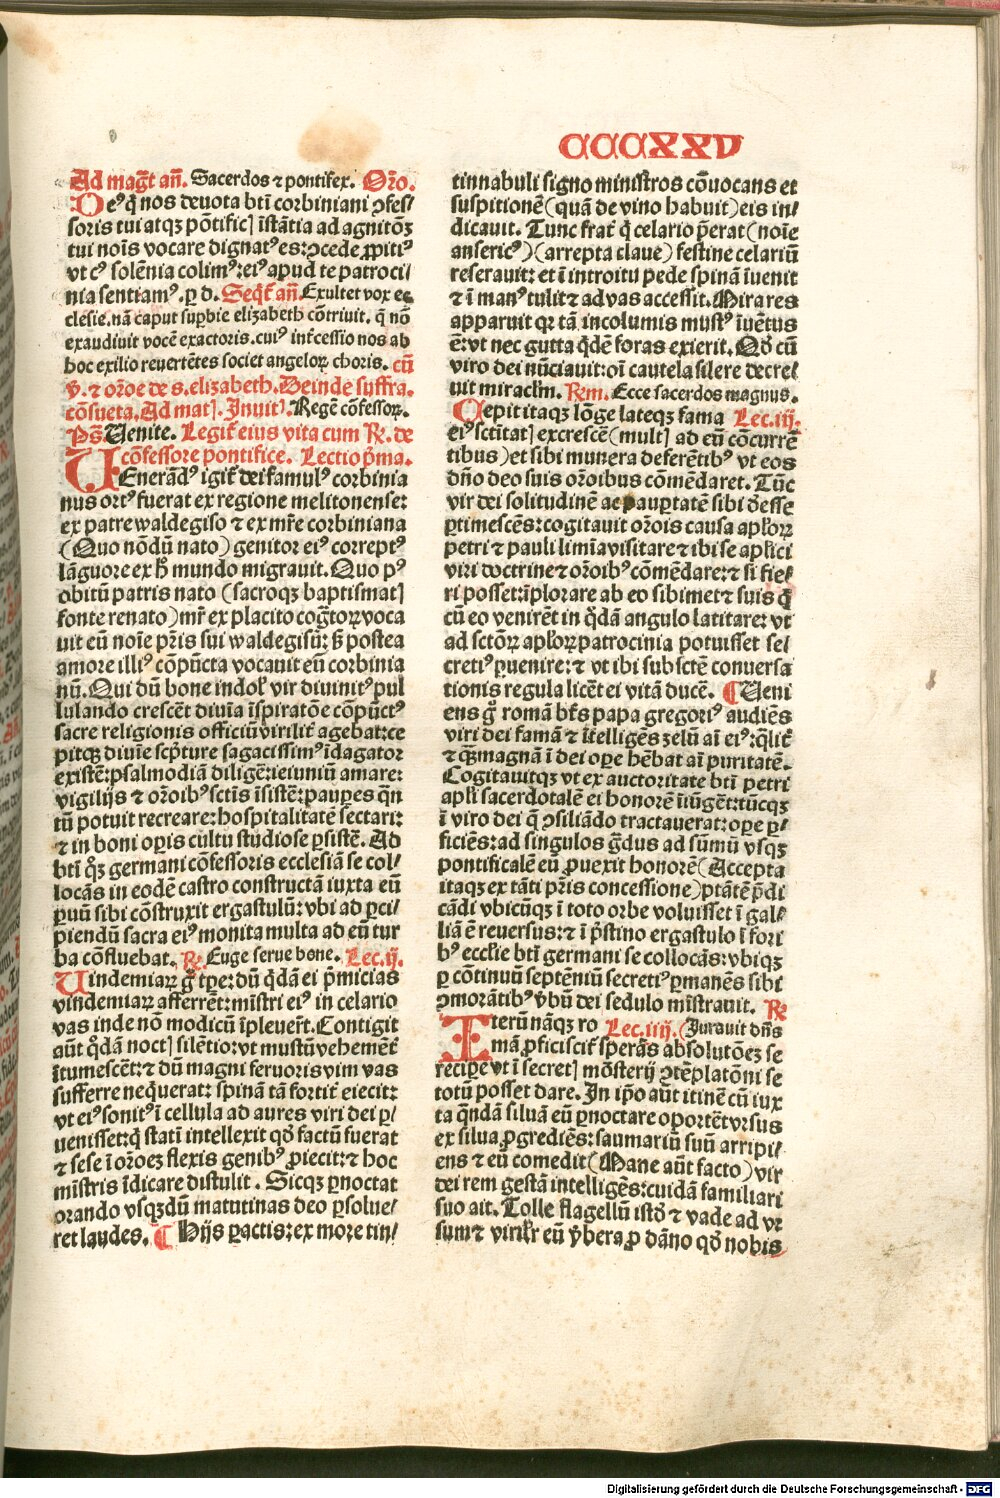 CCCXXV
Ad magt̄ an̄. Sacerdos ⁊ pontifex. Orō.
Deꝰ q̄ nos deuota bti corbiniani ꝯfes/
soris tui atqꝫ pōtificꝭ īstātia ad agnitōꝫ
tui nōis vocare dignatꝰ es: ꝯcede ꝓpitiꝰ
vt cꝰ solēnia colimꝰ: eiꝰ apud te patroci/
nia sentiamꝰ. ꝑ d. Seqt̄ an̄. Exultet vox ec
clesie. nā caput supbie elizabeth cōtriuit. q̄ nō
exaudiuit vocē exactoris. cuiꝰ intcessio nos ab
hoc exilio reuertētes societ angeloꝝ choris. cū
v̄. ⁊ orōe de s. elizabeth. Deinde suffra.
cōsueta. Ad matꝭ. Inuitꝭ. Regē cōfessoꝝ.
ps̄. Uenite. Legit̄ eius vita cum R̄. de
cōfessore pontifice. Lectio p̄ma.
UEnerādꝰ igit̄ dei famulꝰ corbinia
nus ortꝰ fuerat ex regione melitonense:
ex patre waldegiso ⁊ ex mr̄e corbiniana
(Quo nōdū nato) genitor eiꝰ correptꝰ
lāguore ex h̄ mundo migrauit. Quo pꝰ
obitū patris nato (sacroqꝫ baptismatꝭ
fonte renato) mr̄ ex placito coḡtoꝝ voca
uit eū nōie pr̄is sui waldegisū: s̄ postea
amore illiꝰ cōpūcta vocauit eū corbinia
nū. Qui dū bone indoł vir diuinitꝰ pul
lulando crescēt diuīa īspiratōe cōpūctꝰ
sacre religionis officiū virilit̄ agebat: ce
pitqꝫ diuīe scp̄ture sagacissimꝰ īdagator
existē: psalmodiā diligē: ieiuniū amare:
vigilijs ⁊ orōibꝰ sctīs īsistē: paupes q̄n
tū potuit recreare: hospitalitatē sectari:
⁊ in boni opis cultu studiose ꝑsistē. Ad
bti q̄ꝫ germani cōfessoris ecclesiā se col/
locās in eodē castro constructā iuxta eū
ꝑuū sibi cōstruxit ergastulū: vbi ad ꝑci/
piendū sacra eiꝰ monita multa ad eū tur
ba cōfluebat. R̄. Euge serue bone. Lec. ij.
Uindemiaꝝ g̊ tꝑe: dū q̄dā ei p̄micias
vindemiaꝝ afferrēt: mīstri eiꝰ in celario
vas inde nō modicū īpleuert̄. Contigit
aūt q̄dā noctꝭ silētio: vt mustū vehemēt̄
ītumescēt: ⁊ dū magni feruoris vim vas
sufferre neq̄uerat: spinā tā fortit̄ eiecit:
vt eiꝰ sonitꝰ ī cellula ad aures viri dei ꝑ/
uenisset: q̄ statī intellexit qd̄ factū fuerat
⁊ sese ī orōeꝫ flexis genibꝰ ꝓiecit: ⁊ hoc
mīstris īdicare distulit. Sicqꝫ ꝑnoctat
orando vsqꝫdū matutinas deo ꝑsolue/
ret laudes. ¶ Hijs ꝑactis: ex more tin/
tinnabuli signo ministros cōuocans et
suspitionē (quā de vino habuit) eis in/
dicauit. Tunc frat̄ q̄ celario p̄erat (noīe
ansericꝰ) (arrepta claue) festine celariū
reserauit: et ī introitu pede spinā īuenit
⁊ ī manꝰ tulit ⁊ ad vas accessit. Mira res
apparuit qꝛ tā incolumis mustꝰ īuētus
ē: vt nec gutta q̄dē foras exierit. Qd̄ cū
viro dei nūciauit: oī cautela silere decre/
uit miracłm. R̄m. Ecce sacerdos magnus.
Cepit itaqꝫ lōge lateqꝫ fama Lec. iij.
eiꝰ sctītatꝭ excrescē (multꝭ ad eū cōcurrē
tibus) et sibi munera deferētibꝰ vt eos
dn̄o deo suis orōibus cōmēdaret. Tūc
vir dei solitudinē ac paupertatē sibi deesse
ꝑtimescēs: cogitauit orōis causa apłoꝝ
petri ⁊ pauli limīa visitare ⁊ ibi se aplīci
viri doctrine ⁊ orōibꝰ cōmēdare: ⁊ si fie/
ri posset: īplorare ab eo sibimet ⁊ suis q̄
cū eo venirēt in q̄dā angulo latitare: vt
ad sctōꝝ apłoꝝ patrocinia potuisset se/
cretiꝰ ꝑuenire: ⁊ vt ibi sub sctē conuersa
tionis regula licēt ei vitā ducē. ¶ Ueni
ens g̊ romā bt̄s papa gregoriꝰ audiēs
viri dei famā ⁊ ītelligēs zelū aī eiꝰ: q̄lit̄
⁊ q̄ꝫ magnā ī dei opere hēbat aī puritatē.
Cogitauitqꝫ vt ex auctoritate bti petri
apłi sacerdotalē ei honorē īiūgēt: tūcqꝫ
ī viro dei q̄ ꝯsiliādo tractauerat: ope ꝑ/
ficiēs: ad singulos g̊dus ad sūmū vsqꝫ
pontificalē eū ꝓuexit honorē (Accepta
itaqꝫ ex tāti pr̄is concessione) ptātē p̄di
cādi vbicūqꝫ ī toto orbe voluisset ī gal/
liā ē reuersus: ⁊ ī p̄stino ergastulo ī fori
bꝰ ecclīe bti germani se collocās: vbiqꝫ
ꝑ cōtinuū septēniū secretiꝰ ꝑmanēs sibi
ꝯmorātibꝰ v̄bū dei sedulo mīstrauit. R̄
ITerū nāqꝫ ro Lec. iiij. (Jurauit dn̄s
mā ꝓficiscit̄ sperās absolutōeꝫ se
recipe vt ī secretꝭ mōsterij ꝯtēplatōni se
totū posset dare. In ip̄o aūt itinē cū iux
ta q̄ndā siluā eū ꝑnoctare oportēt vrsus
ex silua ꝓgrediēs: saumariū suū arripi/
ens ⁊ eū comedit (Mane aūt facto) vir
dei rem gestā intelligēs: cuidā familiari
suo ait. Tolle flagellū istd̄ ⁊ vade ad vr
sum ⁊ virilit̄ eū v̄bera ꝓ dāno qd̄ nobis
Digitalisierung gefördert durch die Deutsche Forschungsgemeinschaft - DFG